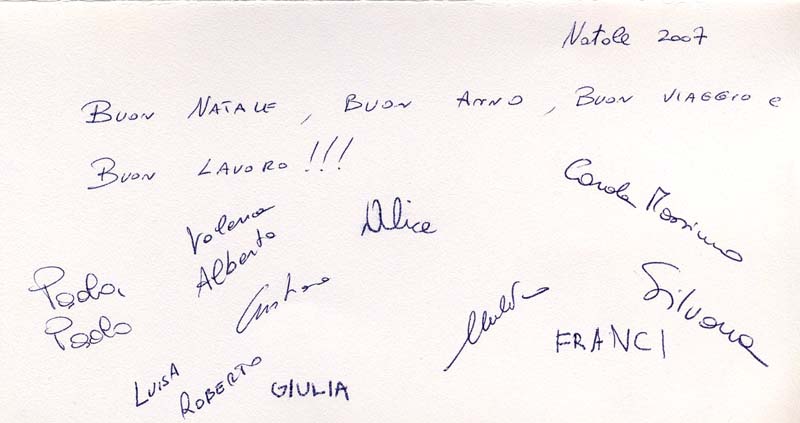 Natale 2007
BUON NATALE, BUON ANNO, BUON VIAGGIO e
BUON LAVORO!!!
Carola Massimo
Valeria
Alberto
Alice
Paola
Paolo
Silvana
FRANCI
LUISA
ROBERTO
GIULIA